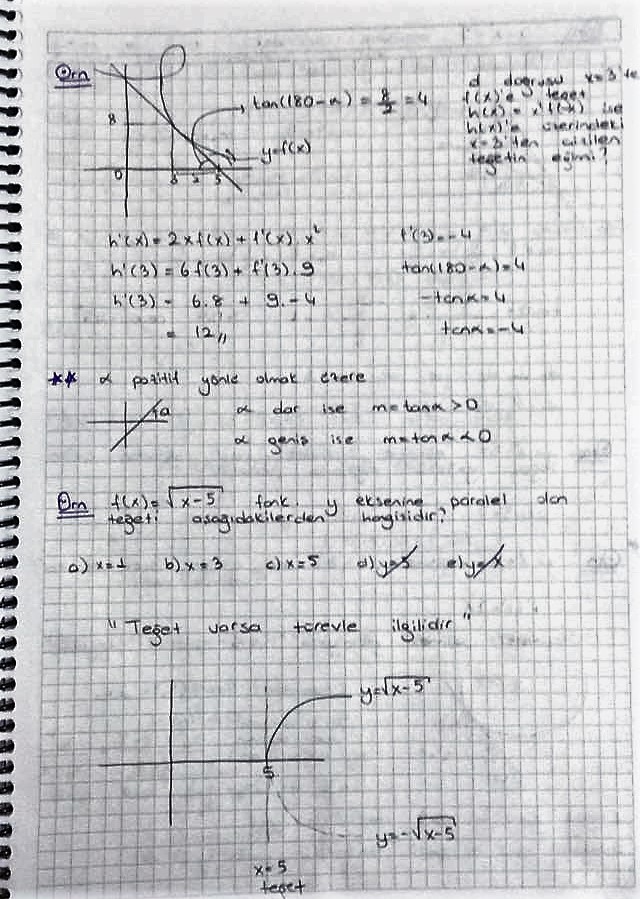 Örn
tan(180-α) = 8/2 = 4
d doğrusu x=3'te
f(x)'e teğet
h(x) = x²f(x) ise
h(x)'e üzerindeki
x=3'ten çizilen
teğetin eğimi?
8
y=f(x)
0 3 2 5
h'(x) = 2xf(x) + f'(x).x²
f'(3) = -4
h'(3) = 6f(3) + f'(3).9
tan(180-α)=4
h'(3) = 6.8 + 9.-4
-tanα=4
= 12,,
tanα=-4
** α pozitif yönle olmak üzere
α dar ise m=tanα>0
α geniş ise m=tanα<0
Örn f(x)=√x-5 fonk. y eksenine paralel olan
teğeti aşağıdakilerden hangisidir?
a) x=1 b) x=3 c) x=5 d) y=5 e) y=x
" Teğet varsa türevle ilgilidir "
y=√x-5
5
y=-√x-5
x=5
teğet